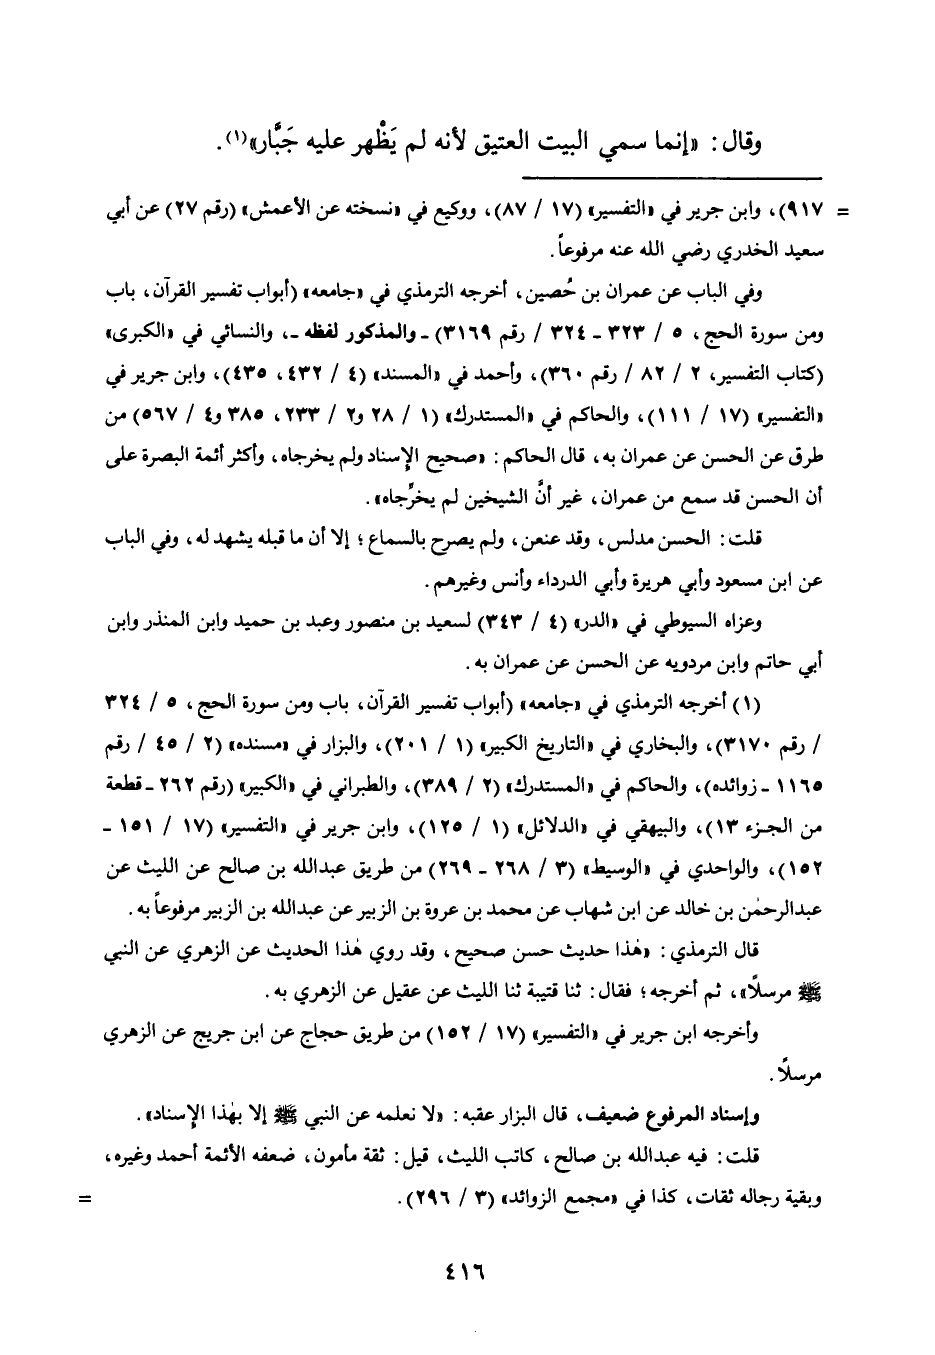 وقال: «إنما سمي البيت العتيق لأنه لم يَظْهر عليه جَبَّار»(١).
= ٩١٧)، وابن جرير في «التفسير» (١٧ / ٨٧)، ووكيع في «نسخته عن الأعمش» (رقم ٢٧) عن أبي
سعيد الخدري رضي الله عنه مرفوعاً.
وفي الباب عن عمران بن حُصين، أخرجه الترمذي في «جامعه» (أبواب تفسير القرآن، باب
ومن سورة الحج، ٥ / ٣٢٣ ـ ٣٢٤ / رقم ٣١٦٩) ـ والمذكور لفظه ـ، والنسائي في «الكبرى»
(كتاب التفسير، ٢ / ٨٢ / رقم ٣٦٠)، وأحمد في «المسند» (٤ / ٤٣٢، ٤٣٥)، وابن جرير في
«التفسير» (١٧ / ١١١)، والحاكم في «المستدرك» (١ / ٢٨ و٢ / ٢٣٣، ٣٨٥ و٤ / ٥٦٧) من
طرق عن الحسن عن عمران به، قال الحاكم: «صحيح الإسناد ولم يخرجاه، وأكثر أئمة البصرة على
أن الحسن قد سمع من عمران، غير أنَّ الشيخين لم يخرِّجاه».
قلت: الحسن مدلس، وقد عنعن، ولم يصرح بالسماع؛ إلا أن ما قبله يشهد له، وفي الباب
عن ابن مسعود وأبي هريرة وأبي الدرداء وأنس وغيرهم.
وعزاه السيوطي في «الدر» (٤ / ٣٤٣) لسعيد بن منصور وعبد بن حميد وابن المنذر وابن
أبي حاتم وابن مردويه عن الحسن عن عمران به.
(١) أخرجه الترمذي في «جامعه» (أبواب تفسير القرآن، باب ومن سورة الحج، ٥ / ٣٢٤
/ رقم ٣١٧٠)، والبخاري في «التاريخ الكبير» (١ / ٢٠١)، والبزار في «مسنده» (٢ / ٤٥ / رقم
١١٦٥ ـ زوائده)، والحاكم في «المستدرك» (٢ / ٣٨٩)، والطبراني في «الكبير» (رقم ٢٦٢ ـ قطعة
من الجزء ١٣)، والبيهقي في «الدلائل» (١ / ١٢٥)، وابن جرير في «التفسير» (١٧ / ١٥١ ـ
١٥٢)، والواحدي في «الوسيط» (٣ / ٢٦٨ ـ ٢٦٩) من طريق عبدالله بن صالح عن الليث عن
عبدالرحمٰن بن خالد عن ابن شهاب عن محمد بن عروة بن الزبير عن عبدالله بن الزبير مرفوعاً به.
قال الترمذي: «هٰذا حديث حسن صحيح، وقد روي هٰذا الحديث عن الزهري عن النبي
ﷺ مرسلًا»، ثم أخرجه؛ فقال: ثنا قتيبة ثنا الليث عن عقيل عن الزهري به.
وأخرجه ابن جرير في «التفسير» (١٧ / ١٥٢) من طريق حجاج عن ابن جريج عن الزهري
مرسلًا.
وإسناد المرفوع ضعيف، قال البزار عقبه: «لا نعلمه عن النبي ﷺ إلا بهٰذا الإسناد».
قلت: فيه عبدالله بن صالح، كاتب الليث، قيل: ثقة مأمون، ضعفه الأئمة أحمد وغيره،
وبقية رجاله ثقات، كذا في «مجمع الزوائد» (٣ / ٢٩٦). =
٤١٦